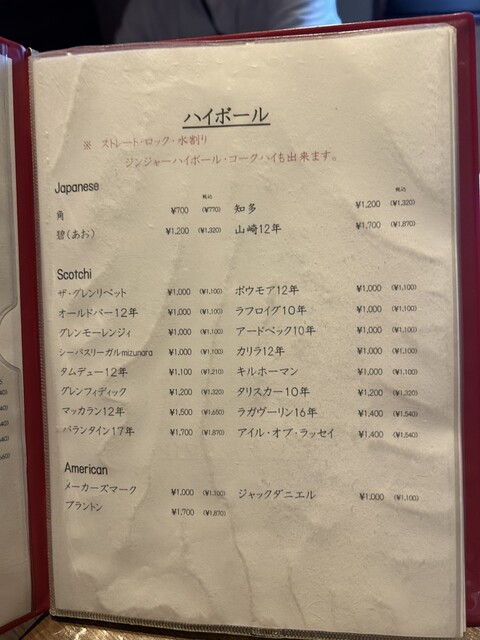 ハイボール
※ ストレート・ロック・水割り
ジンジャーハイボール・コークハイも出来ます。
Japanese
税込 税込
角 ¥700 (¥770) 知多 ¥1,200 (¥1,320)
碧(あお) ¥1,200 (¥1,320) 山崎12年 ¥1,700 (¥1,870)
Scotchi
ザ・グレンリベット ¥1,000 (¥1,100) ボウモア12年 ¥1,000 (¥1,100)
オールドパー12年 ¥1,000 (¥1,100) ラフロイグ10年 ¥1,000 (¥1,100)
グレンモーレンジィ ¥1,000 (¥1,100) アードベック10年 ¥1,000 (¥1,100)
シーバスリーガルmizunara ¥1,000 (¥1,100) カリラ12年 ¥1,000 (¥1,100)
タムデュー12年 ¥1,100 (¥1,210) キルホーマン ¥1,000 (¥1,100)
グレンフィディック ¥1,200 (¥1,320) タリスカー10年 ¥1,200 (¥1,320)
マッカラン12年 ¥1,500 (¥1,650) ラガヴーリン16年 ¥1,400 (¥1,540)
バランタイン17年 ¥1,700 (¥1,870) アイル・オブ・ラッセイ ¥1,400 (¥1,540)
American
メーカーズマーク ¥1,000 (¥1,100) ジャックダニエル ¥1,000 (¥1,100)
ブラントン ¥1,700 (¥1,870)